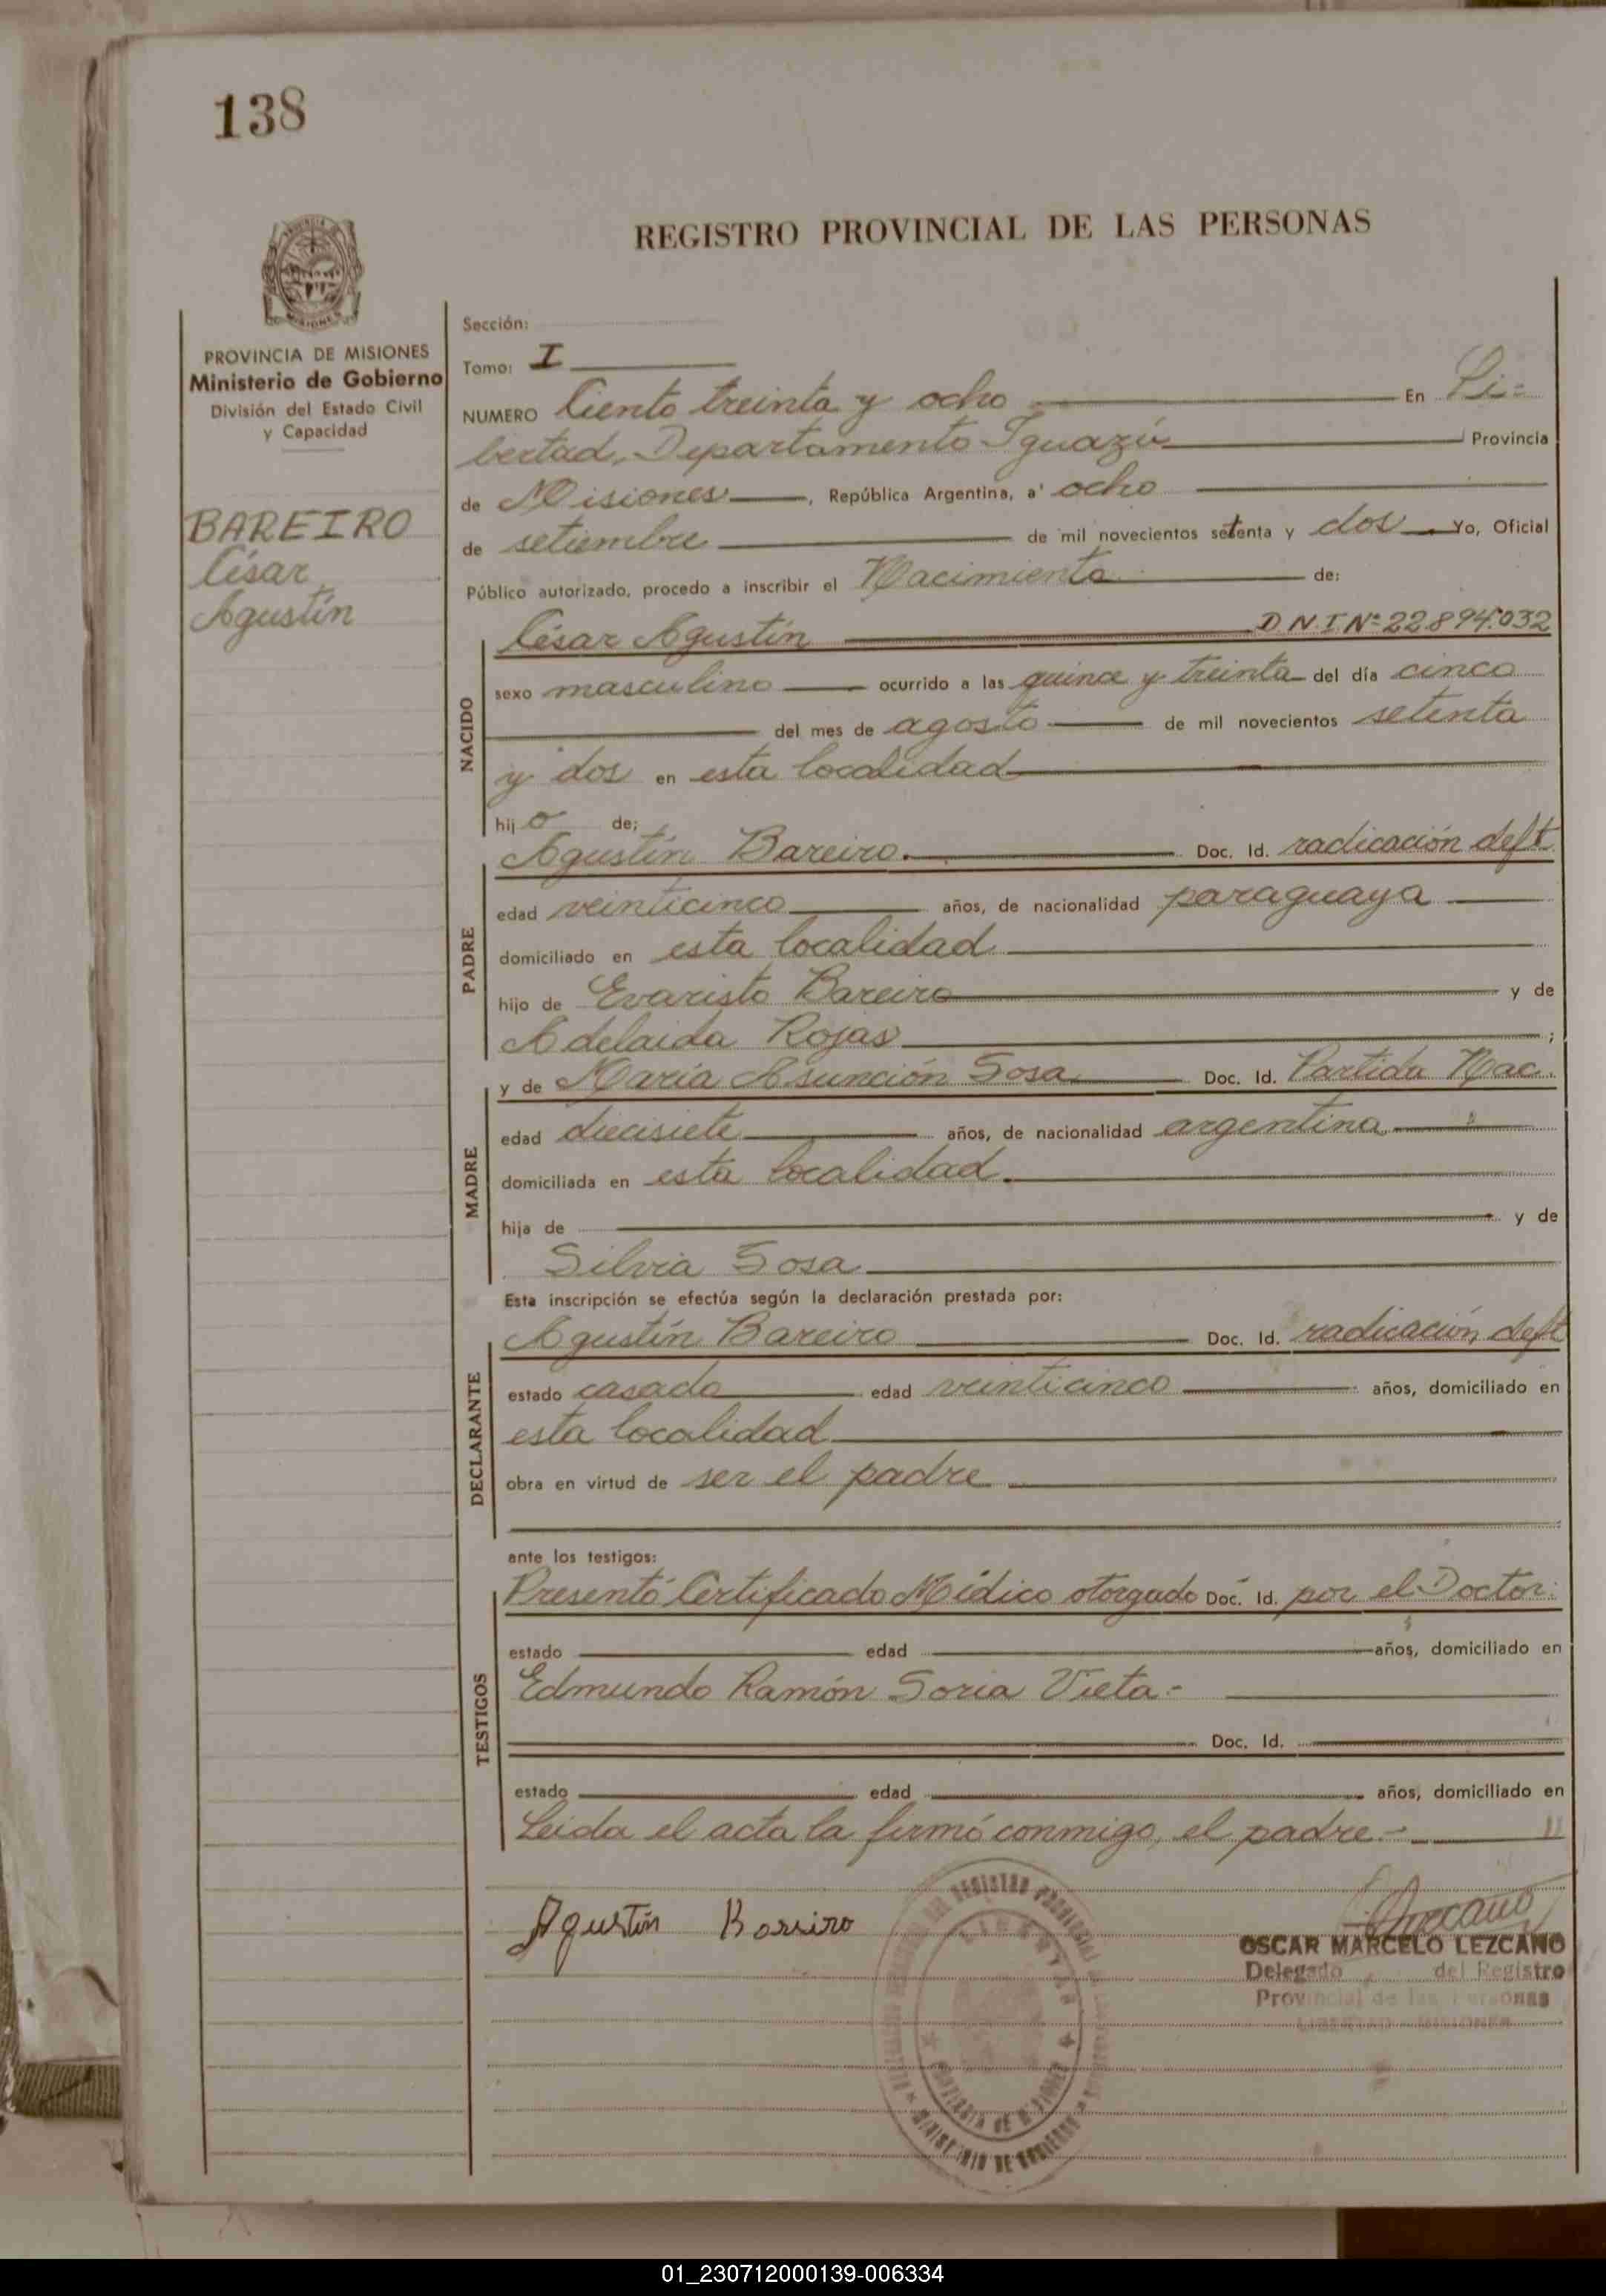 138
REGISTRO PROVINCIAL DE LAS PERSONAS
PROVINCIA DE MISIONES
Ministerio de Gobierno
División del Estado Civil
y Capacidad
BAREIRO
César
Agustín
Sección:
Tomo: I
NUMERO Ciento treinta y ocho En Li=
bertad, Departamento Iguazú Provincia
de Misiones, República Argentina, a' ocho
de setiembre de mil novecientos setenta y dos. Yo, Oficial
Público autorizado, procedo a inscribir el Nacimiento de:
NACIDO
César Agustín D N I Nº 22.894.032
sexo masculino ocurrido a las quince y treinta del día cinco
del mes de agosto de mil novecientos setenta
y dos en esta localidad
hij o de;
PADRE
Agustín Bareiro. Doc. Id. radicación deft.
edad veinticinco años, de nacionalidad paraguaya
domiciliado en esta localidad
hijo de Evaristo Bareiro y de
Adelaida Rojas ;
MADRE
y de María Asunción Sosa Doc. Id. Partida Nac.
edad diecisiete años, de nacionalidad argentina
domiciliada en esta localidad.
hija de y de
Silvia Sosa
Esta inscripción se efectúa según la declaración prestada por:
DECLARANTE
Agustín Bareiro Doc. Id. radicación deft
estado casado edad veinticinco años, domiciliado en
esta localidad
obra en virtud de ser el padre
ante los testigos:
TESTIGOS
Presentó Certificado Médico otorgado Doc. Id. por el Doctor:
estado edad años, domiciliado en
Edmundo Ramón Soria Vieta.-
Doc. Id.
estado edad años, domiciliado en
Leida el acta la firmó conmigo, el padre.-
Agustín Bareiro
OSCAR MARCELO LEZCANO
Delegado del Registro
Provincial de las Personas
LIBERTAD - MISIONES
LIBERTAD
PROVINCIA DE MISIONES
MINISTERIO DE GOBIERNO
01_230712000139-006334